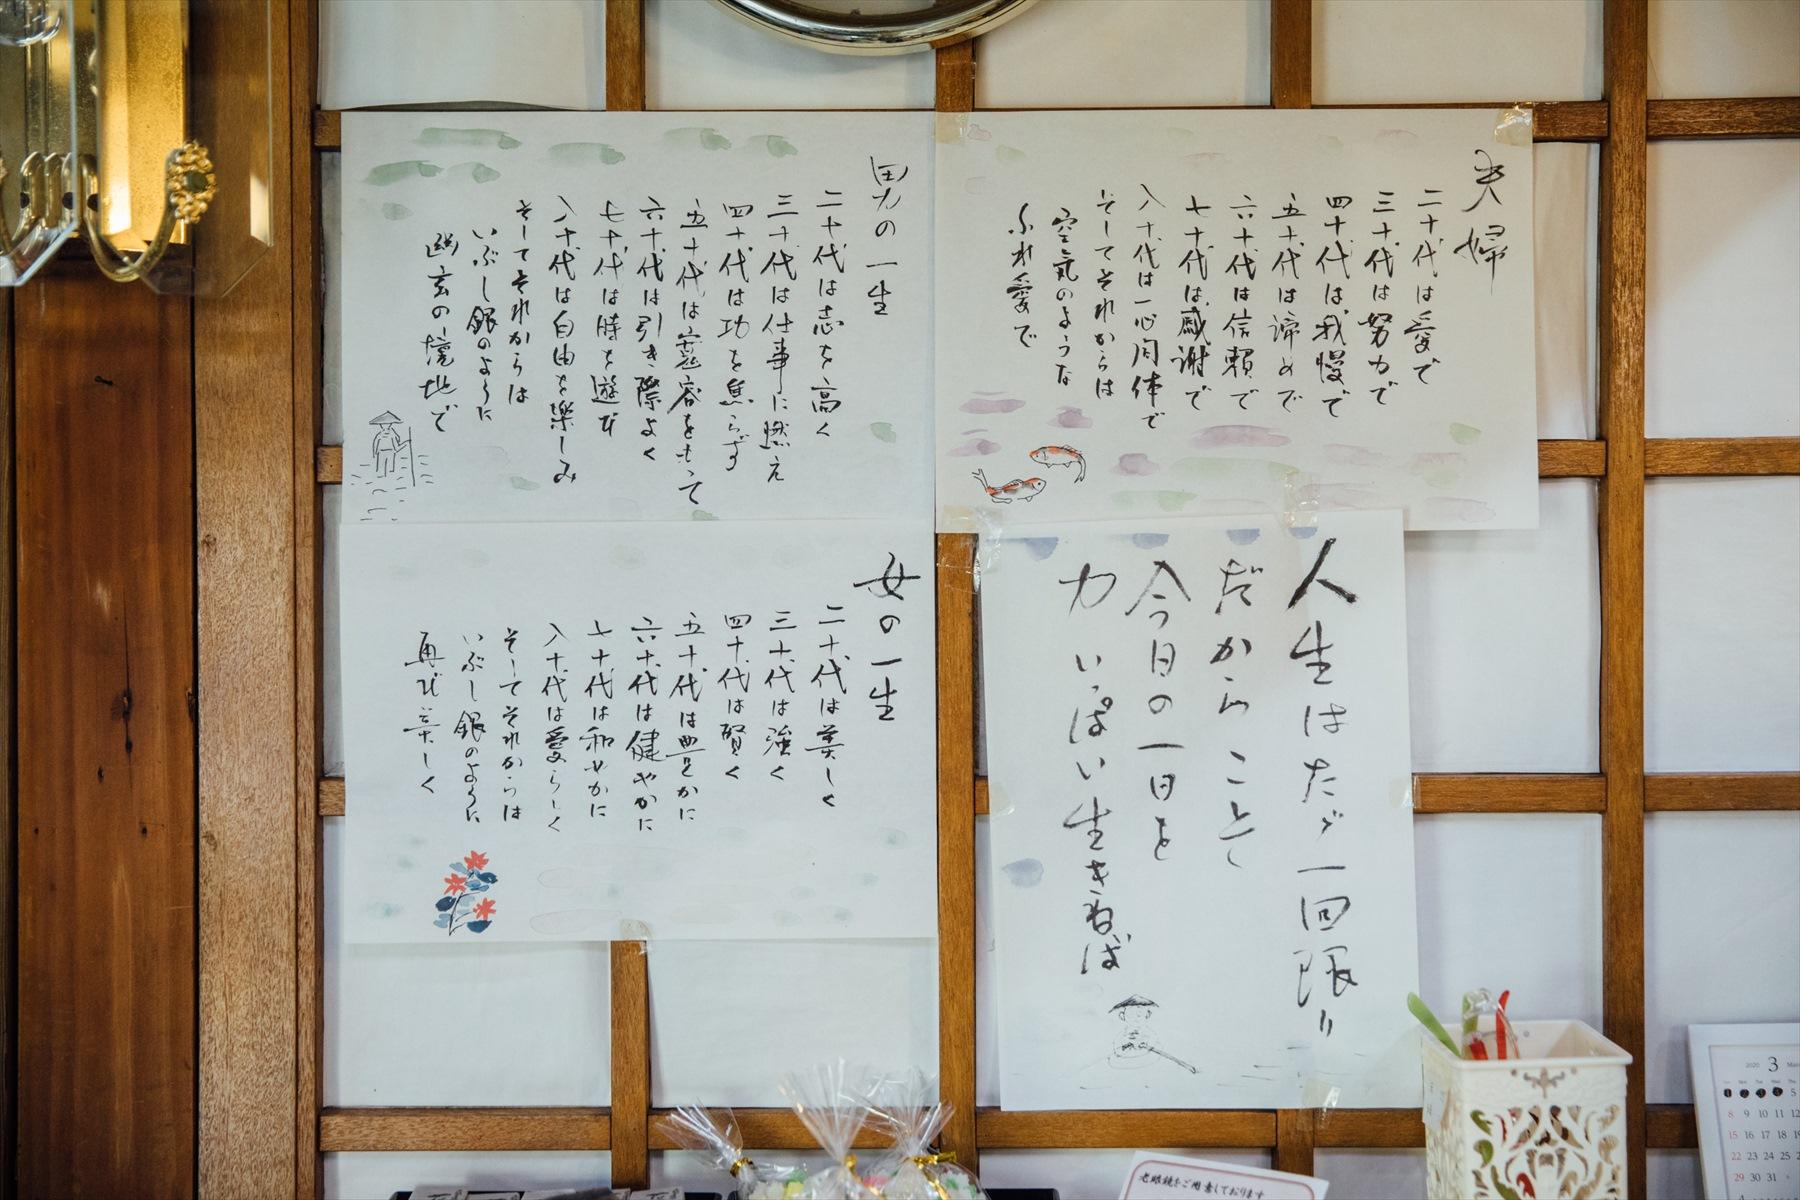 夫婦
二十代は愛で
三十代は努力で
四十代は我慢で
五十代は諦めで
六十代は信頼で
七十代は感謝で
八十代は一心同体で
そしてそれからは
空気のような
ふれ愛で
男の一生
二十代は志を高く
三十代は仕事に燃え
四十代は功を焦らず
五十代は寛容をもって
六十代は引き際よく
七十代は時を遊び
八十代は自由を楽しみ
そしてそれからは
いぶし銀のように
幽玄の境地で
人生はたゞ一回限り
だからこそ
今日の一日を
力いっぱい生きねば
女の一生
二十代は美しく
三十代は強く
四十代は賢く
五十代は豊かに
六十代は健やかに
七十代は和やかに
八十代は愛らしく
そしてそれからは
いぶし銀のように
再び美しく
老眼鏡をご用意しております
2020 3
8 9 10 11
15 16 17 18
22 23 24 25
29 30 31